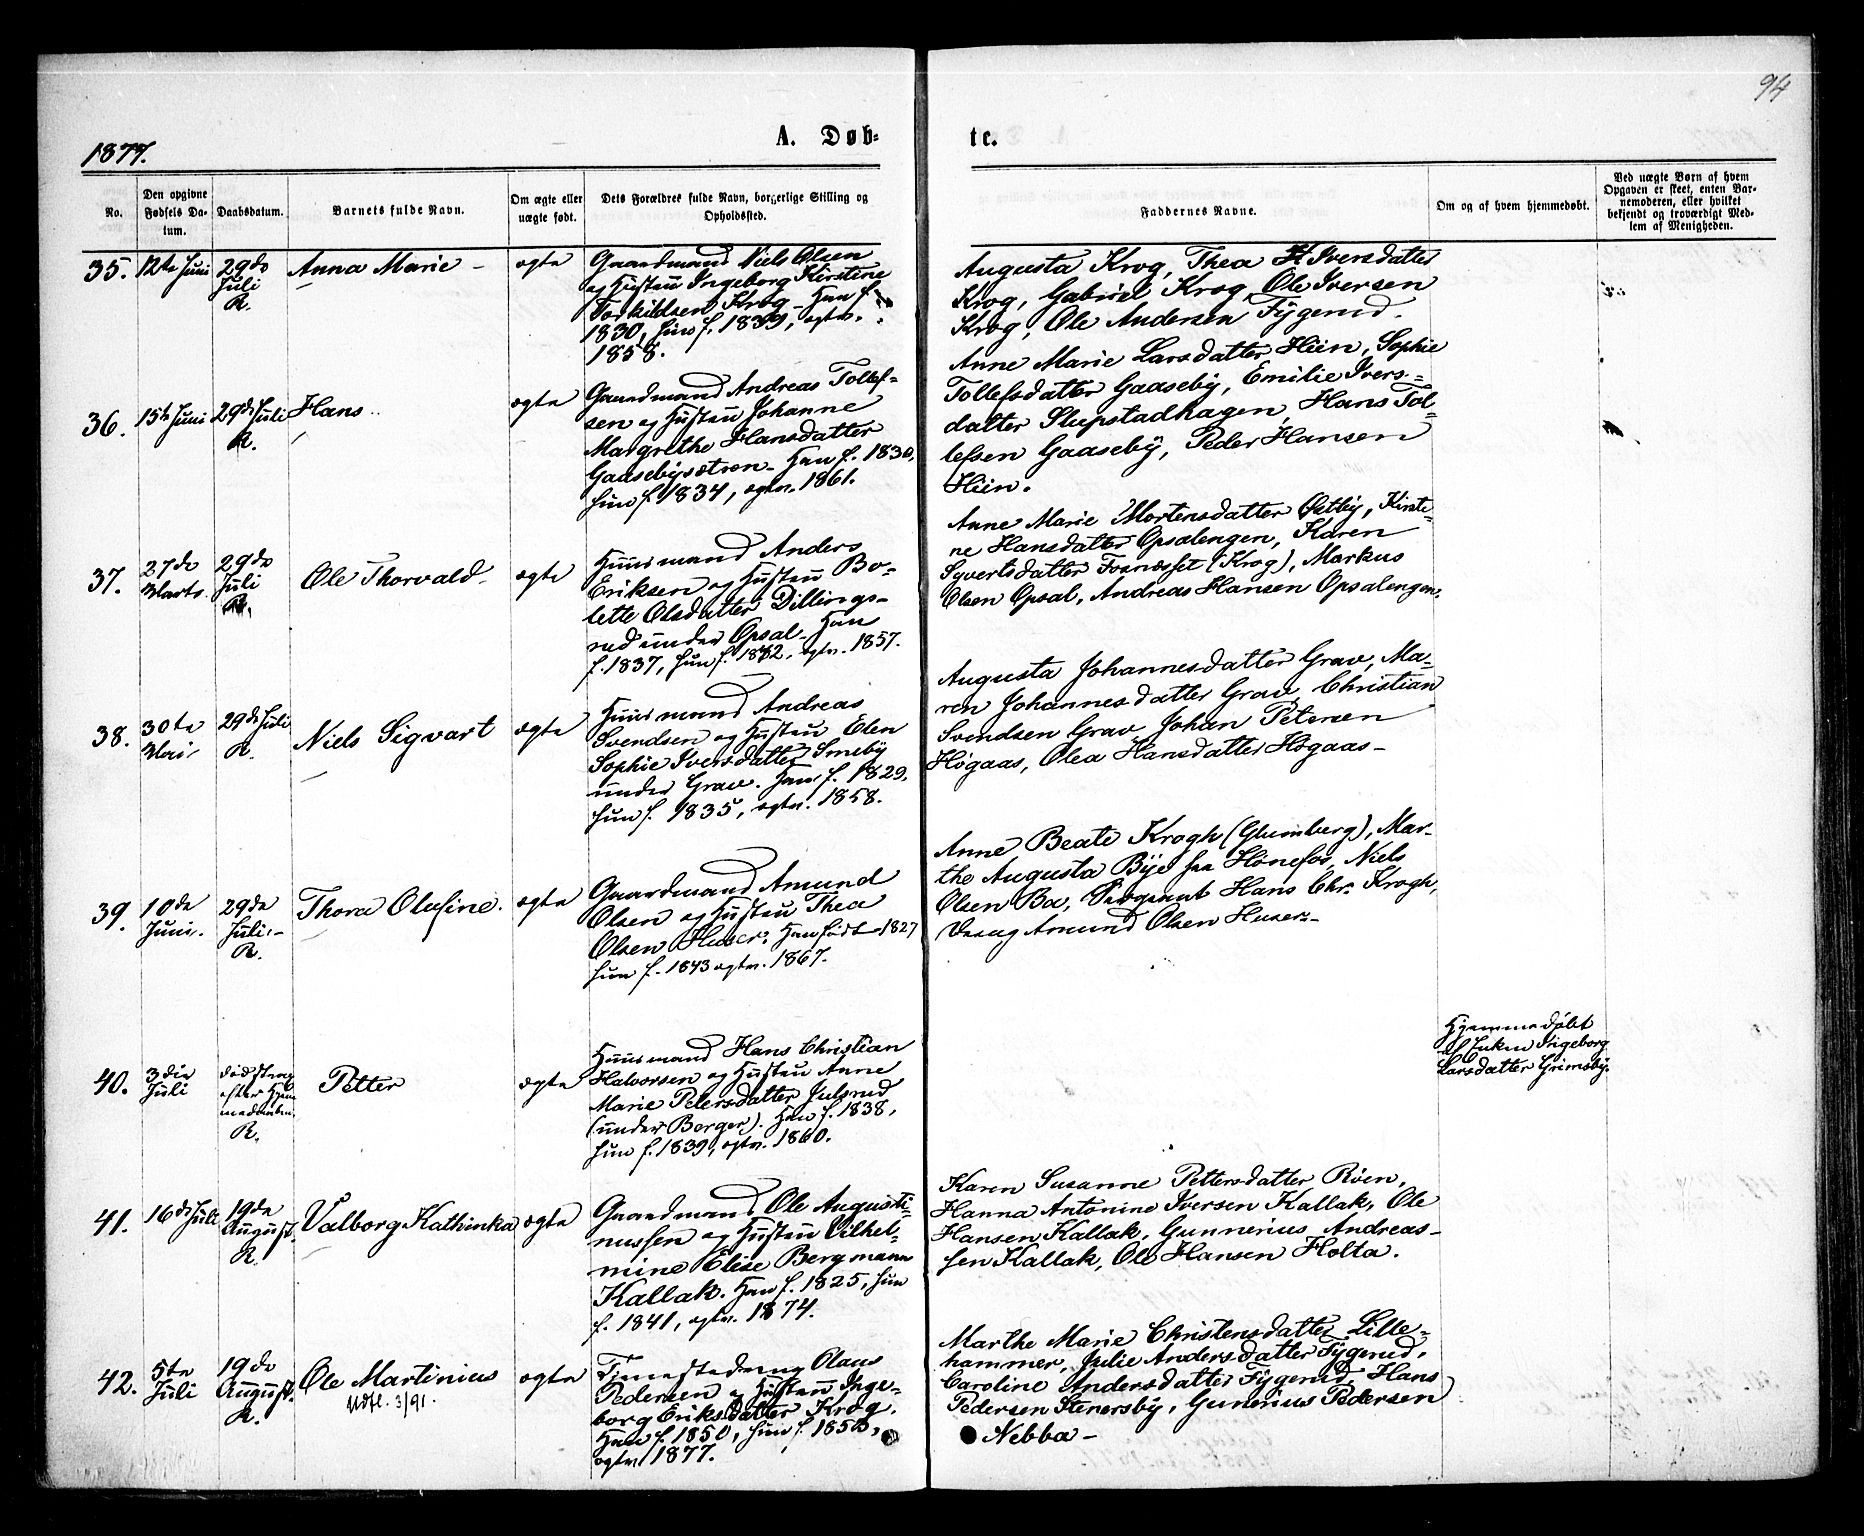 94
1877.
A. Døb-
te.
No.
Den opgivne
Fødsels Da-
tum.
Daabsdatum.
Barnets fulde Navn.
Om ægte eller
uægte født.
Dets Forældres fulde Navn, borgerlige Stilling og
Opholdssted.
Faddernes Navne.
Om og af hvem hjemmedøbt.
Ved uægte Børn af hvem
Opgaven er skeet, enten Bar-
nemoderen, eller hvilket
bekjendt og troværdigt Med-
lem af Menigheden.
35.
12te Juni
29de
Juli
R.
Anna Marie -
ægte
Gaardmand Niels Olsen
og Hustru Ingeborg Kirstine
Torkildsen Krog - Han f.
1830, hun f. 1839, egtv.
1858.
Augusta Krog, Thea H. Iversdatter
Krog, Gabriel Krog, Ole Iversen
Krog, Ole Andersen Tygerud.
36.
15de Juni
29de Juli
R.
Hans
ægte
Gaardmand Andreas Tollef-
sen og Hustru Johanne
Margrethe Hansdatter
Gaasebysætren - Han f. 1830,
hun f. 1834, egtv. 1861.
Anne Marie Larsdatter Hiin, Sophie
Tollefsdatter Gaaseby, Emilie Ivers-
datter Slupstadhagen, Hans Tol-
lefsen Gaaseby, Peder Hansen
Hiin.
37.
27de
Marts.
29de
Juli
R.
Ole Thorvald.
ægte
Huusmand Anders
Eriksen og Hustru Bo-
lette Olsdatter Dillings-
rud under Opsal - Han
f. 1837, hun f. 1832, egtv. 1857.
Anne Marie Mortensdatter Østby, Kirsti-
ne Hansdatter Opsalengen, Karen
Syvertsdatter Fosnæsset (Krog), Markus
Olsen Opsal, Andreas Hansen Opsalengen.
38.
30te
Mai
29de Juli
R.
Niels Sigvart
ægte
Huusmand Andreas
Svendsen og Hustru Elen
Sophie Iversdatter Smeby
under Grav. Han f. 1829,
hun f. 1835, egtv. 1858.
Augusta Johannesdatter Grav, Ma-
ren Johannesdatter Grav, Christian
Svendsen Grav, Johan Petersen
Høgaas, Olea Hansdatter Høgaas -
39.
10de
Juni.
29de
Juli.
R.
Thora Olufine.
ægte
Gaardmand Amund
Olsen og Hustru Thea
Olsen Huser. Han født 1827
hun f. 1843 egtv. 1867.
Anne Beate Krogh (Glumberg), Mar-
the Augusta Bye fra Hønefos, Niels
Olsen Ba, Sergeant Hans Chr. Krogh,
Amund Olsen Huser -
40.
3die
Juli
død strax
efter Hjem
medaaben.
R.
Petter
ægte
Huusmand Hans Christian
Halvorsen og Hustru Anne
Marie Petersdatter Julsrud
(under Berger). Han f. 1838,
hun f. 1839, egtv. 1860.
Hjemmedøbt
af Enken Ingeborg
Larsdatter Grimsby.
41.
16de Juli
19de
August.
R.
Valborg Kathinka
ægte
Gaardmand Ole Augusti-
nussen og Hustru Vilhel-
mine Elise Bergmann
Kallak. Han f. 1825, hun
f. 1841, egtv. 1874.
Karen Susanne Pettersdatter Røen,
Hanna Antonine Iversen Kallak, Ole
Hansen Kallak, Gunnerius Andreas-
sen Kallak, Ole Hansen Holta.
42.
5te
Juli
19de
August.
R.
Ole Martinius
Udfl. 3/91.
ægte
Tjenestedreng Olaus
Pedersen og Hustru Inge-
borg Eriksdatter Krog.
Han f. 1850, hun f. 1850,
egtv. 1877.
Marthe Marie Christensdatter Lille-
hammer, Julie Andersdatter Tygerud,
Caroline Andersdatter Tygerud, Hans
Pedersen Stenersby, Gunerius Pedersen
Nebba -